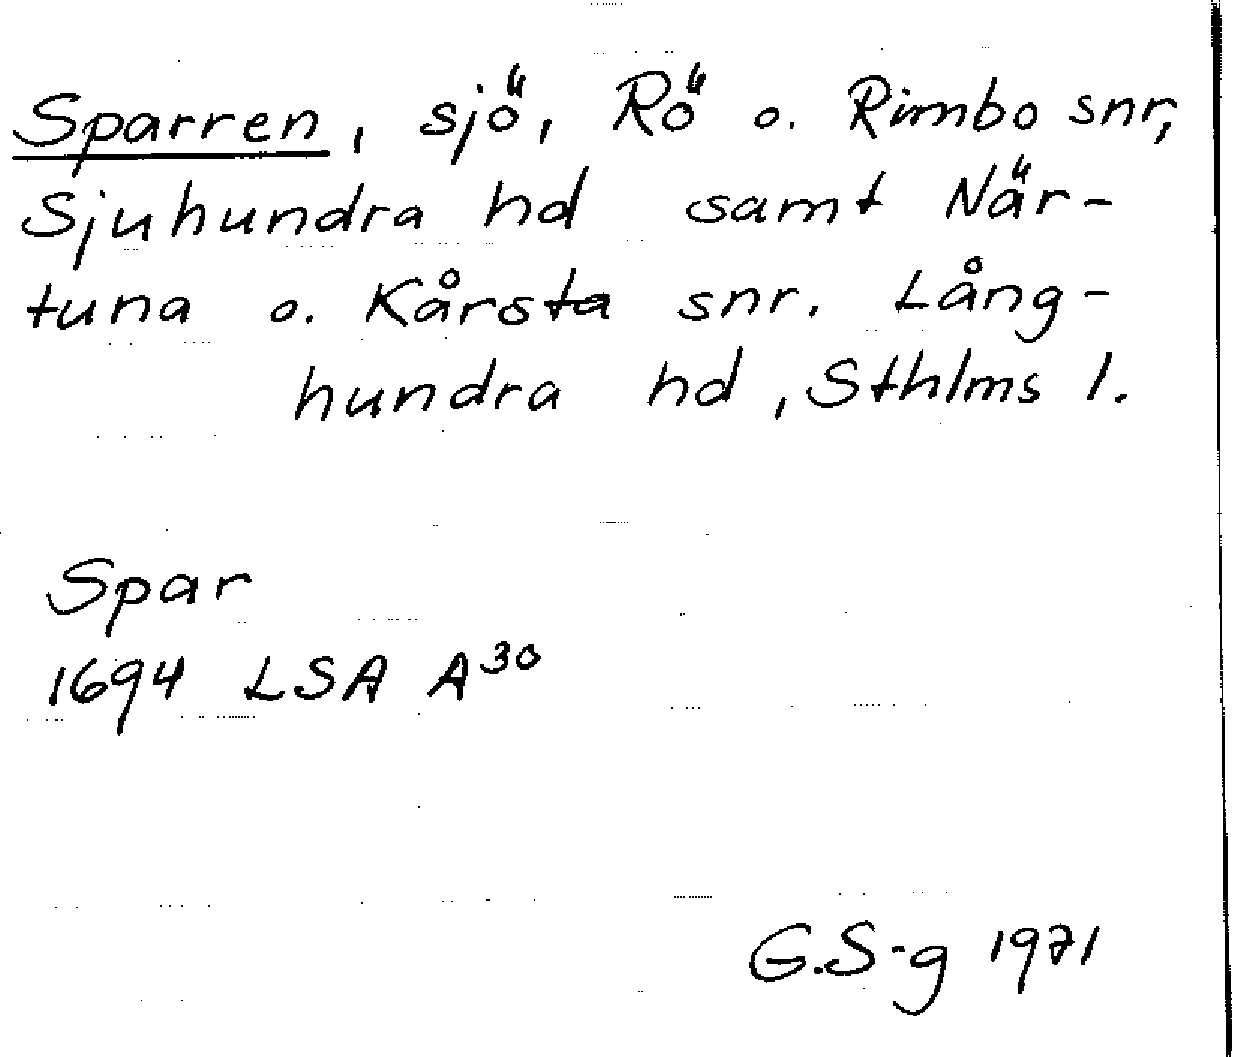 Sparren, sjö, Rö o. Rimbo snr,
Sjuhundra hd samt När-
tuna o. Kårsta snr. Lång-
hundra hd, Sthlms l.
Spar
1694 LSA A30
G.S-g 1971